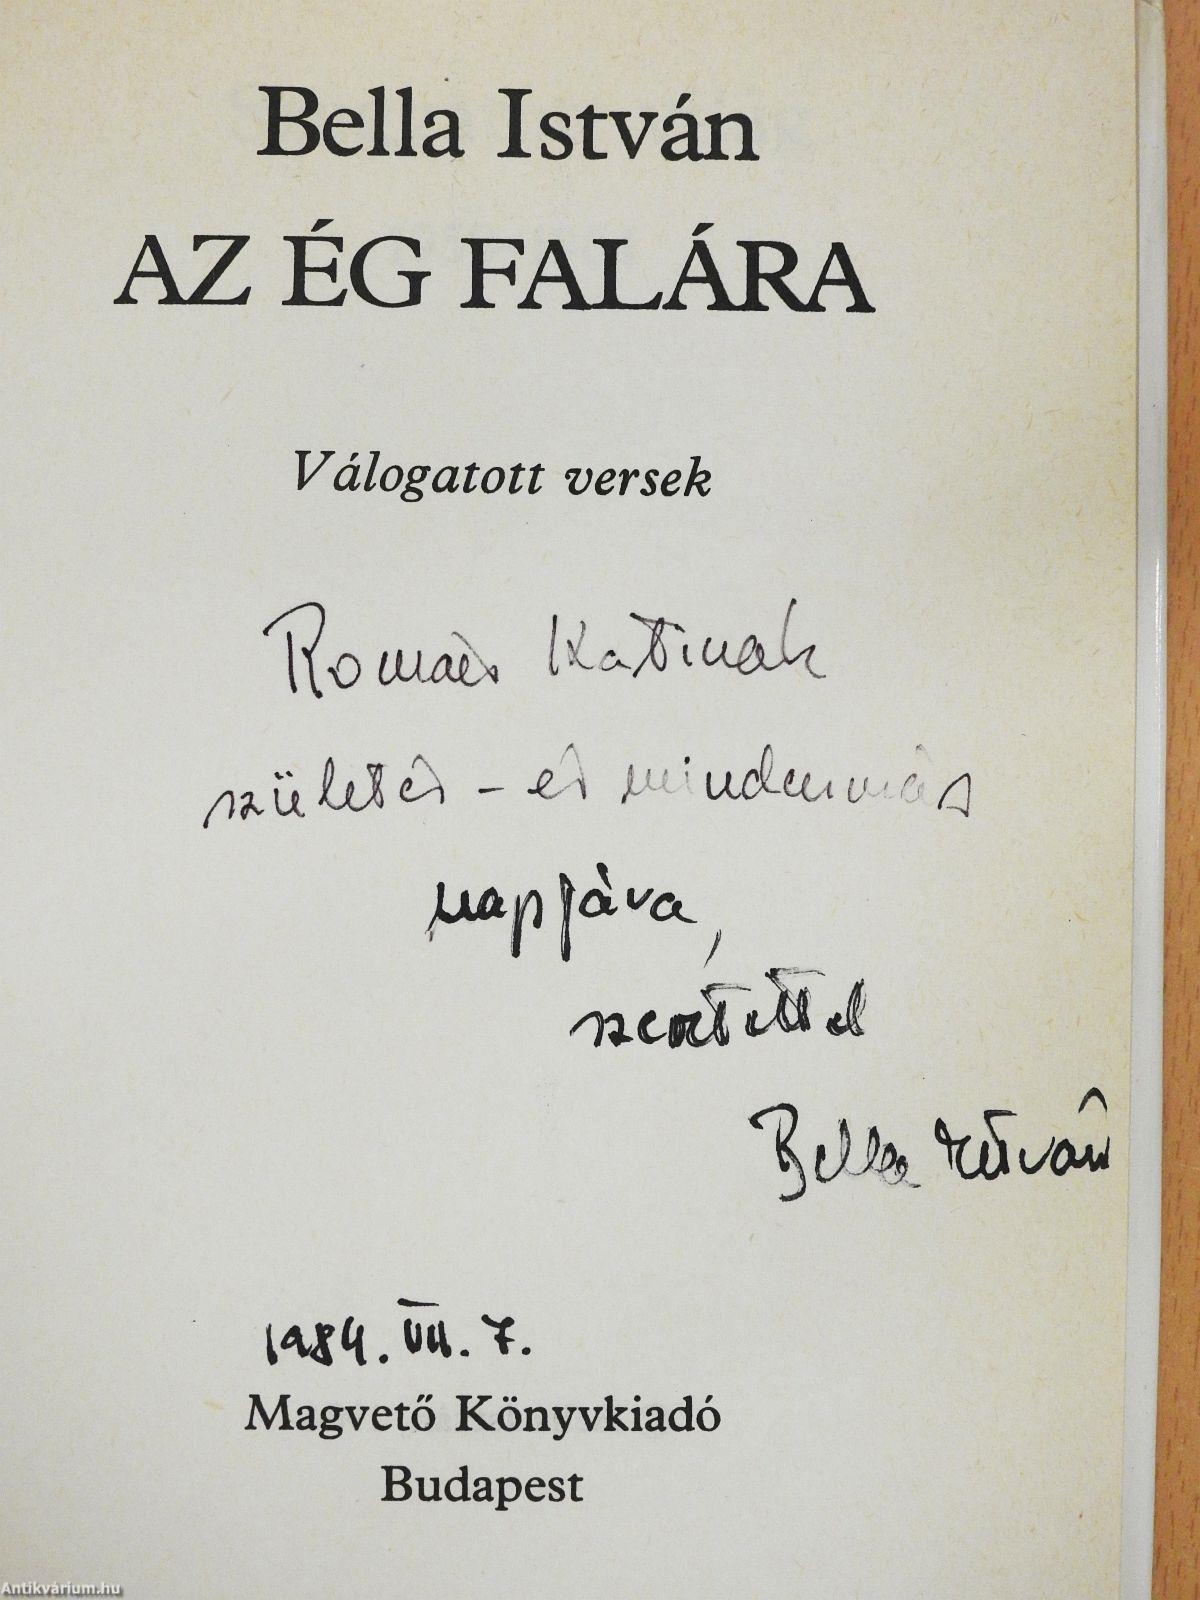 Bella István
AZ ÉG FALÁRA
Válogatott versek
Romás Katinak
születés - és mindenmás
napjára,
szeretettel
Bella István
1984. VII. 7.
Magvető Könyvkiadó
Budapest
Antikvárium.hu